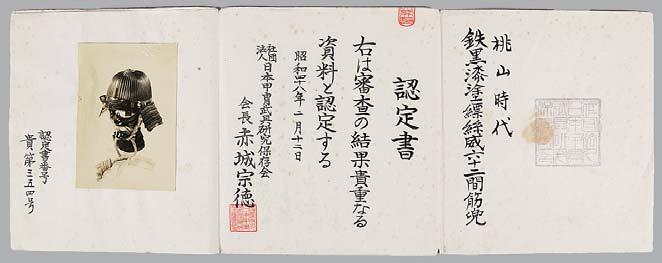 桃山時代
鉄黒漆塗縹絲威六十二間筋兜
認定書
右は審査の結果貴重なる
資料と認定する
昭和四八年二月十二日
社団法人日本甲冑武具研究保存会
会長 赤城宗徳
認定書番号
貴第三五四号